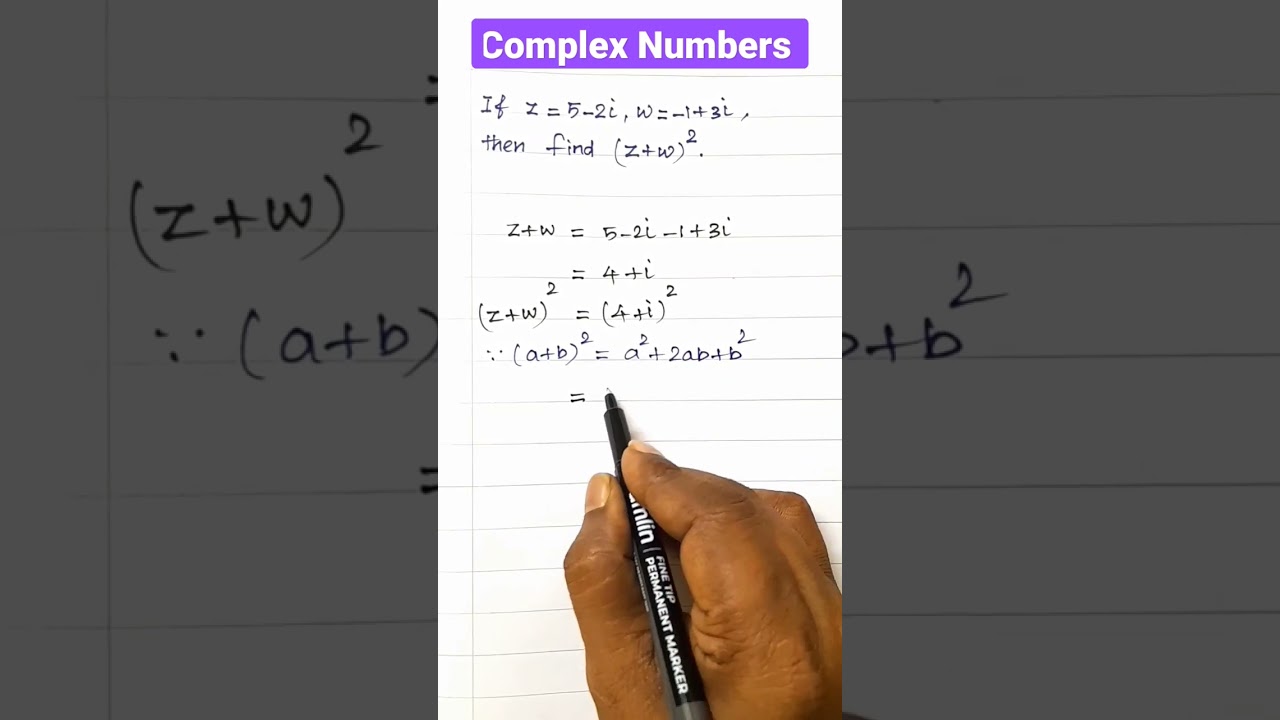 Complex Numbers
If z = 5-2i, w = -1+3i,
then find (z+w)².
z+w = 5-2i-1+3i
= 4+i
(z+w)² = (4+i)²
∵ (a+b)² = a²+2ab+b²
=
mlin FINE TIP
PERMANENT MARKER
(z+w)²
∵ (a+b)
b+b²
=